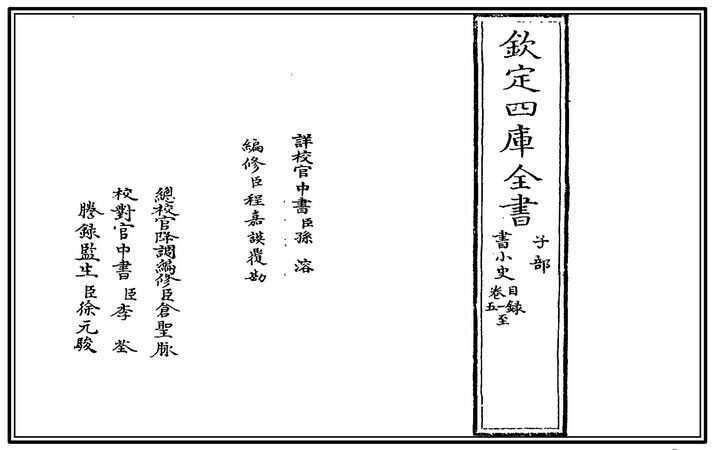 欽定四庫全書
子部
書小史
目録
卷一至
五
詳校官中書臣孫溶
編修臣程嘉謨覆勘
總校官降調編修臣倉聖脉
校對官中書臣李荃
謄録監生臣徐元駿